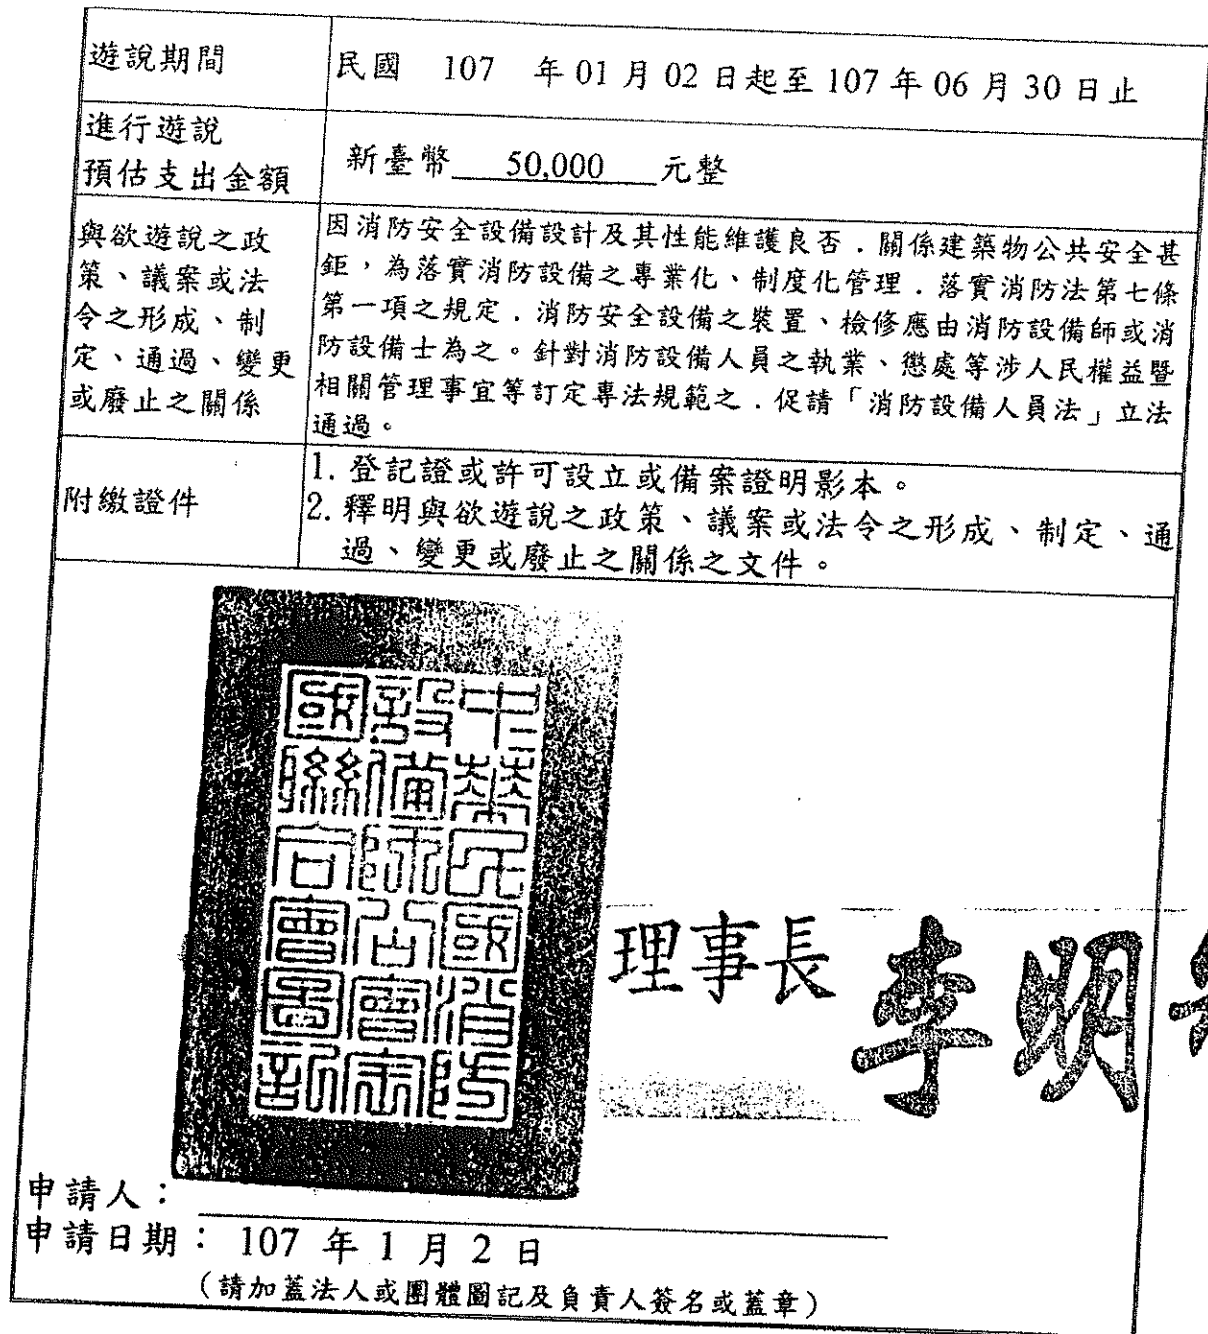 遊說期間
民國 107 年 01 月 02 日起至 107 年 06 月 30 日止
進行遊說
預估支出金額
新臺幣 50,000 元整
與欲遊說之政
策、議案或法
令之形成、制
定、通過、變更
或廢止之關係
因消防安全設備設計及其性能維護良否．關係建築物公共安全甚
鉅，為落實消防設備之專業化、制度化管理．落實消防法第七條
第一項之規定．消防安全設備之裝置、檢修應由消防設備師或消
防設備士為之。針對消防設備人員之執業、懲處等涉人民權益暨
相關管理事宜等訂定專法規範之．促請「消防設備人員法」立法
通過。
附繳證件
1. 登記證或許可設立或備案證明影本。
2. 釋明與欲遊說之政策、議案或法令之形成、制定、通
過、變更或廢止之關係之文件。
中華民國消防
設備師公會全
國聯合會圖記
理事長 李明
申請人：
申請日期：107 年 1 月 2 日
（請加蓋法人或團體圖記及負責人簽名或蓋章）